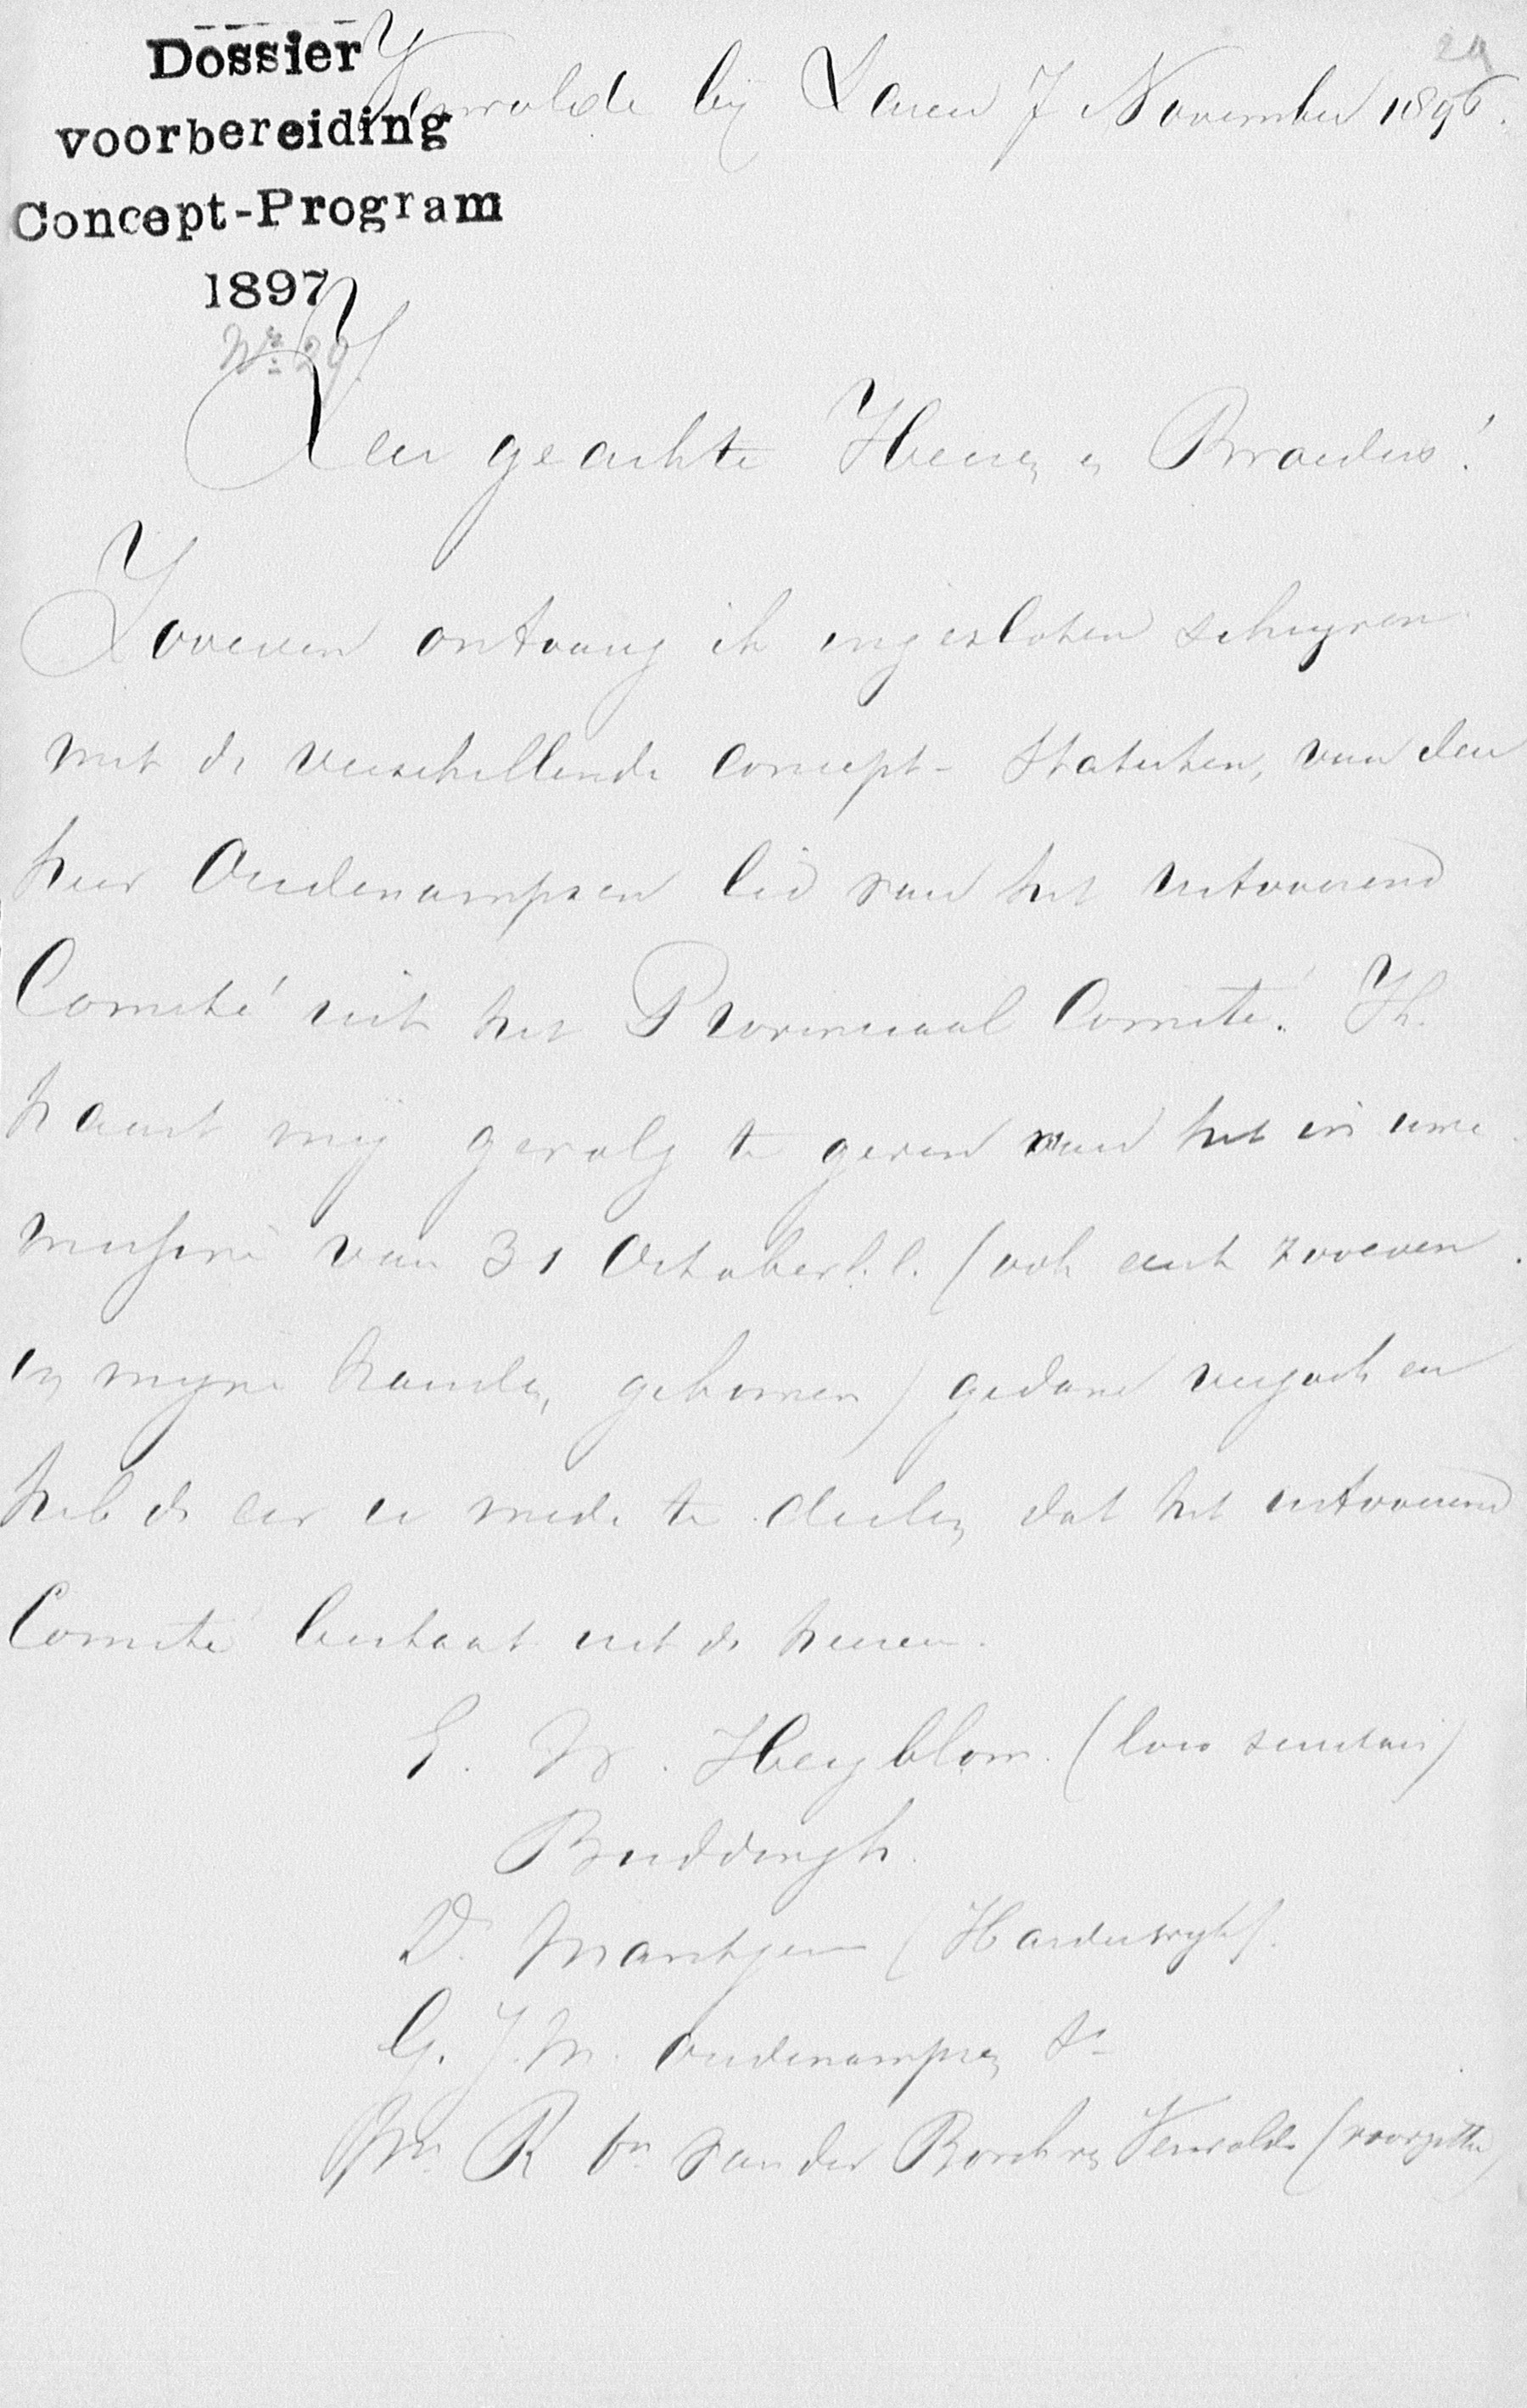 24
Dossier
voorbereiding
Concept-Program
1897
No. 29.
Verwolde bij Laren 7 November 1896.
Zeer geachte Heeren en Broeders!
Zooeven ontvang ik ingesloten schrijven
met de verschillende concept-statuten, van den
heer Oudenampsen lid van het uitvoerend
Comité uit het Provinciaal Comité. Ik
haast mij gevolg te geven van het in uwe
missive van 31 October l.l. (ook eerst zooeven
in mijne handen gekomen) gedane verzoek en
heb de eer u mede te deelen dat het uitvoerend
Comité bestaat uit de heeren.
E. W. Heyblom. (loco secretaris)
Buddingh.
D. Mantjen (Harderwijk).
G. J. M. Oudenampsen Sr
Mr. R. bn. van der Borch van Verwolde (voorzitter)